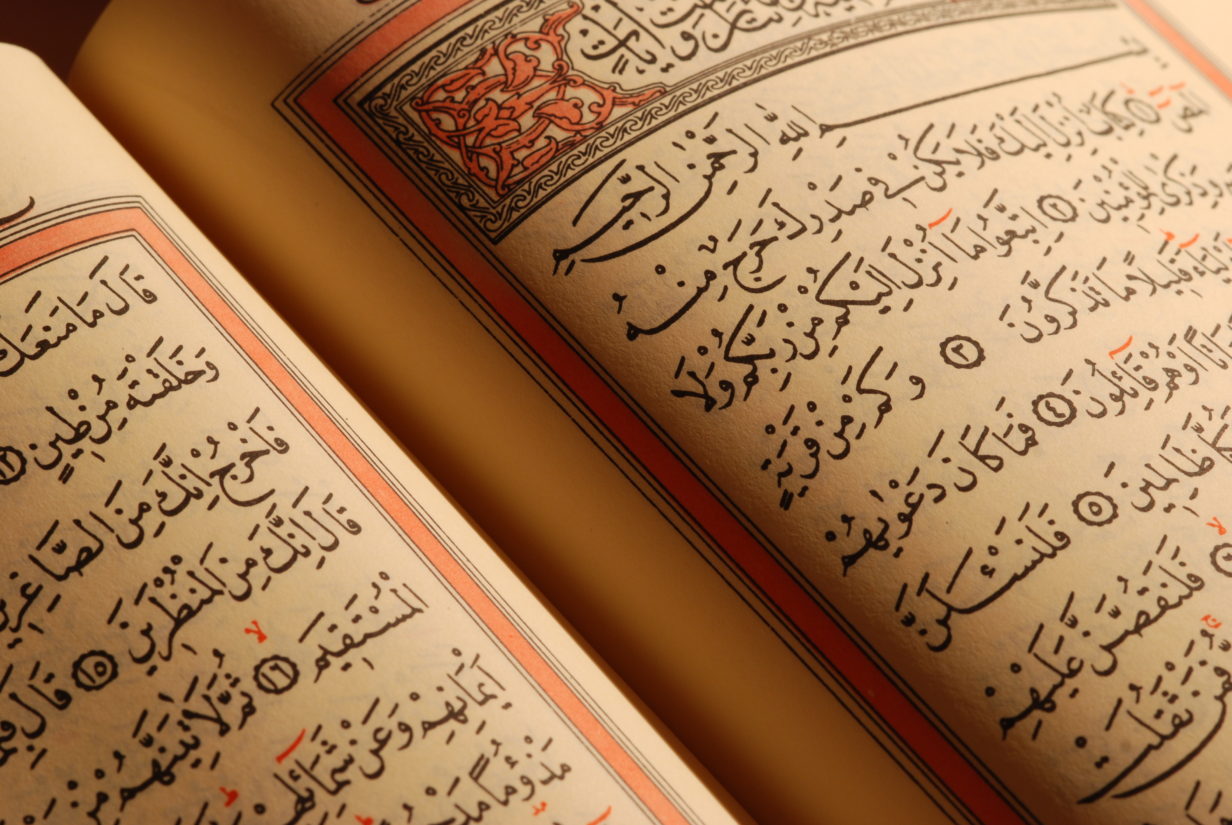 بِسْمِ اللّٰهِ الرَّحْمٰنِ الرَّحِيمِ
الٓمٓصٓ ١ كِتَابٌ اُنْزِلَ اِلَيْكَ فَلَا يَكُنْ فِي صَدْرِكَ حَرَجٌ مِنْهُ
وَذِكْرٰى لِلْمُؤْمِنِينَ ٢ اِتَّبِعُوا مَٓا اُنْزِلَ اِلَيْكُمْ مِنْ رَبِّكُمْ وَلَا
قَلِيلًا مَا تَذَكَّرُونَ ٣ وَكَمْ مِنْ قَرْيَةٍ
اَوْ هُمْ قَٓائِلُونَ ٤ فَمَا كَانَ دَعْوٰيهُمْ
ظَالِمِينَ ٥ فَلَنَسْـَٔلَنَّ
فَلَنَقُصَّنَّ عَلَيْهِمْ
فَمَنْ ثَقُلَتْ
قَالَ مَا مَنَعَكَ
وَخَلَقْتَهُ مِنْ طِينٍ ١٢
فَاخْرُجْ اِنَّكَ مِنَ الصَّاغِرِينَ
قَالَ اِنَّكَ مِنَ الْمُنْظَرِينَ ١٥ قَالَ
الْمُسْتَقِيمَ ١٦ ثُمَّ لَاٰتِيَنَّهُمْ مِنْ
اَيْمَانِهِمْ وَعَنْ شَمَٓائِلِهِمْ
مَذْؤُمًا مَدْحُورًا